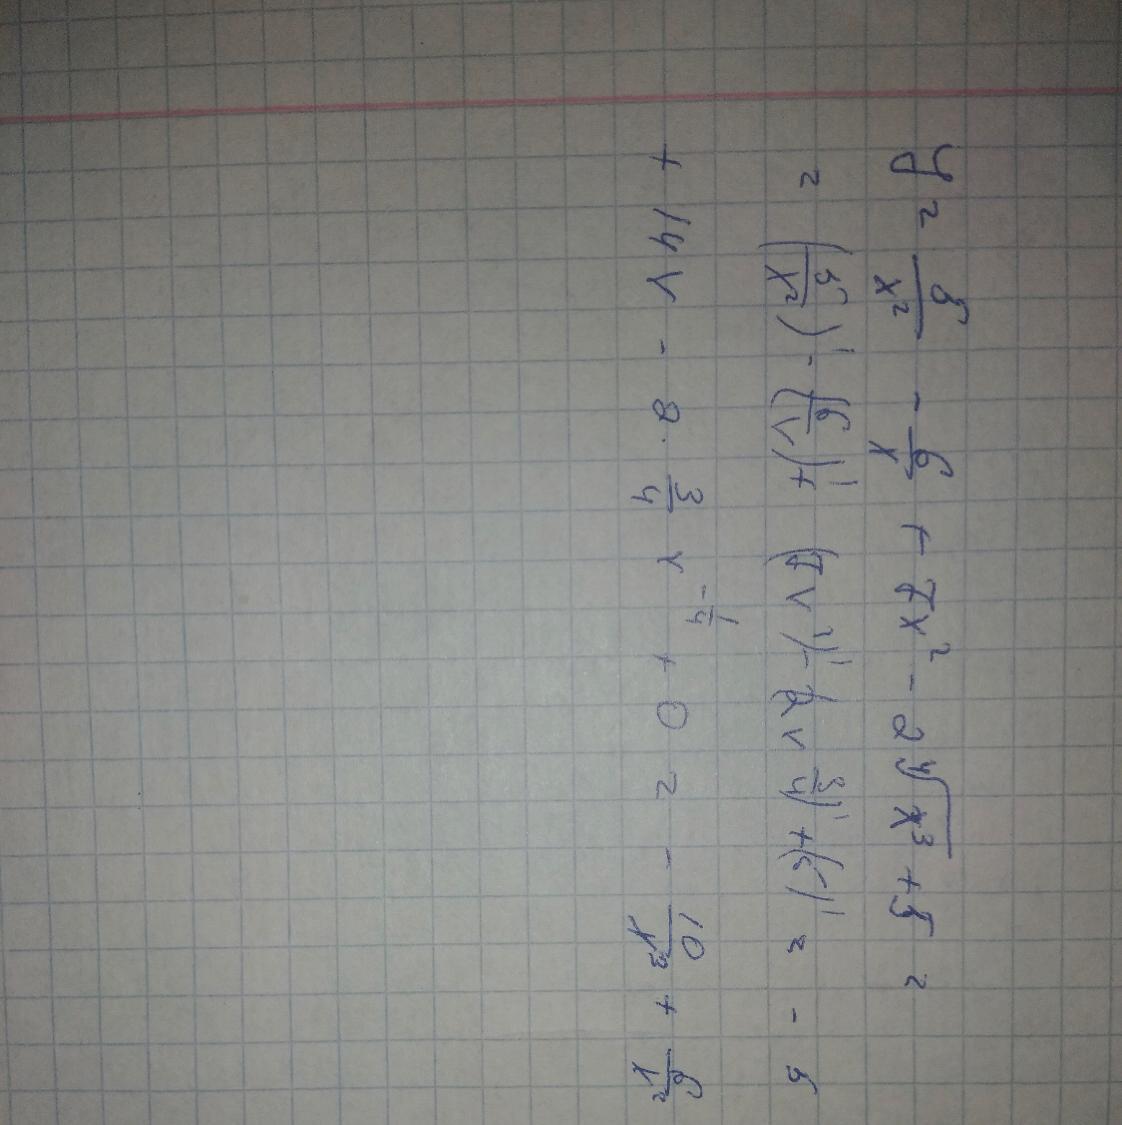 y = 5/x² - 6/x + 7x² - 2⁴√x³ + 5 =
= (5/x²)' - (6/x)' + (7x²)' - (2x^(3/4))' + (5)' = - 5
+ 14x - 2 · 3/4 x^(-1/4) + 0 = - 10/x³ + 6/x²